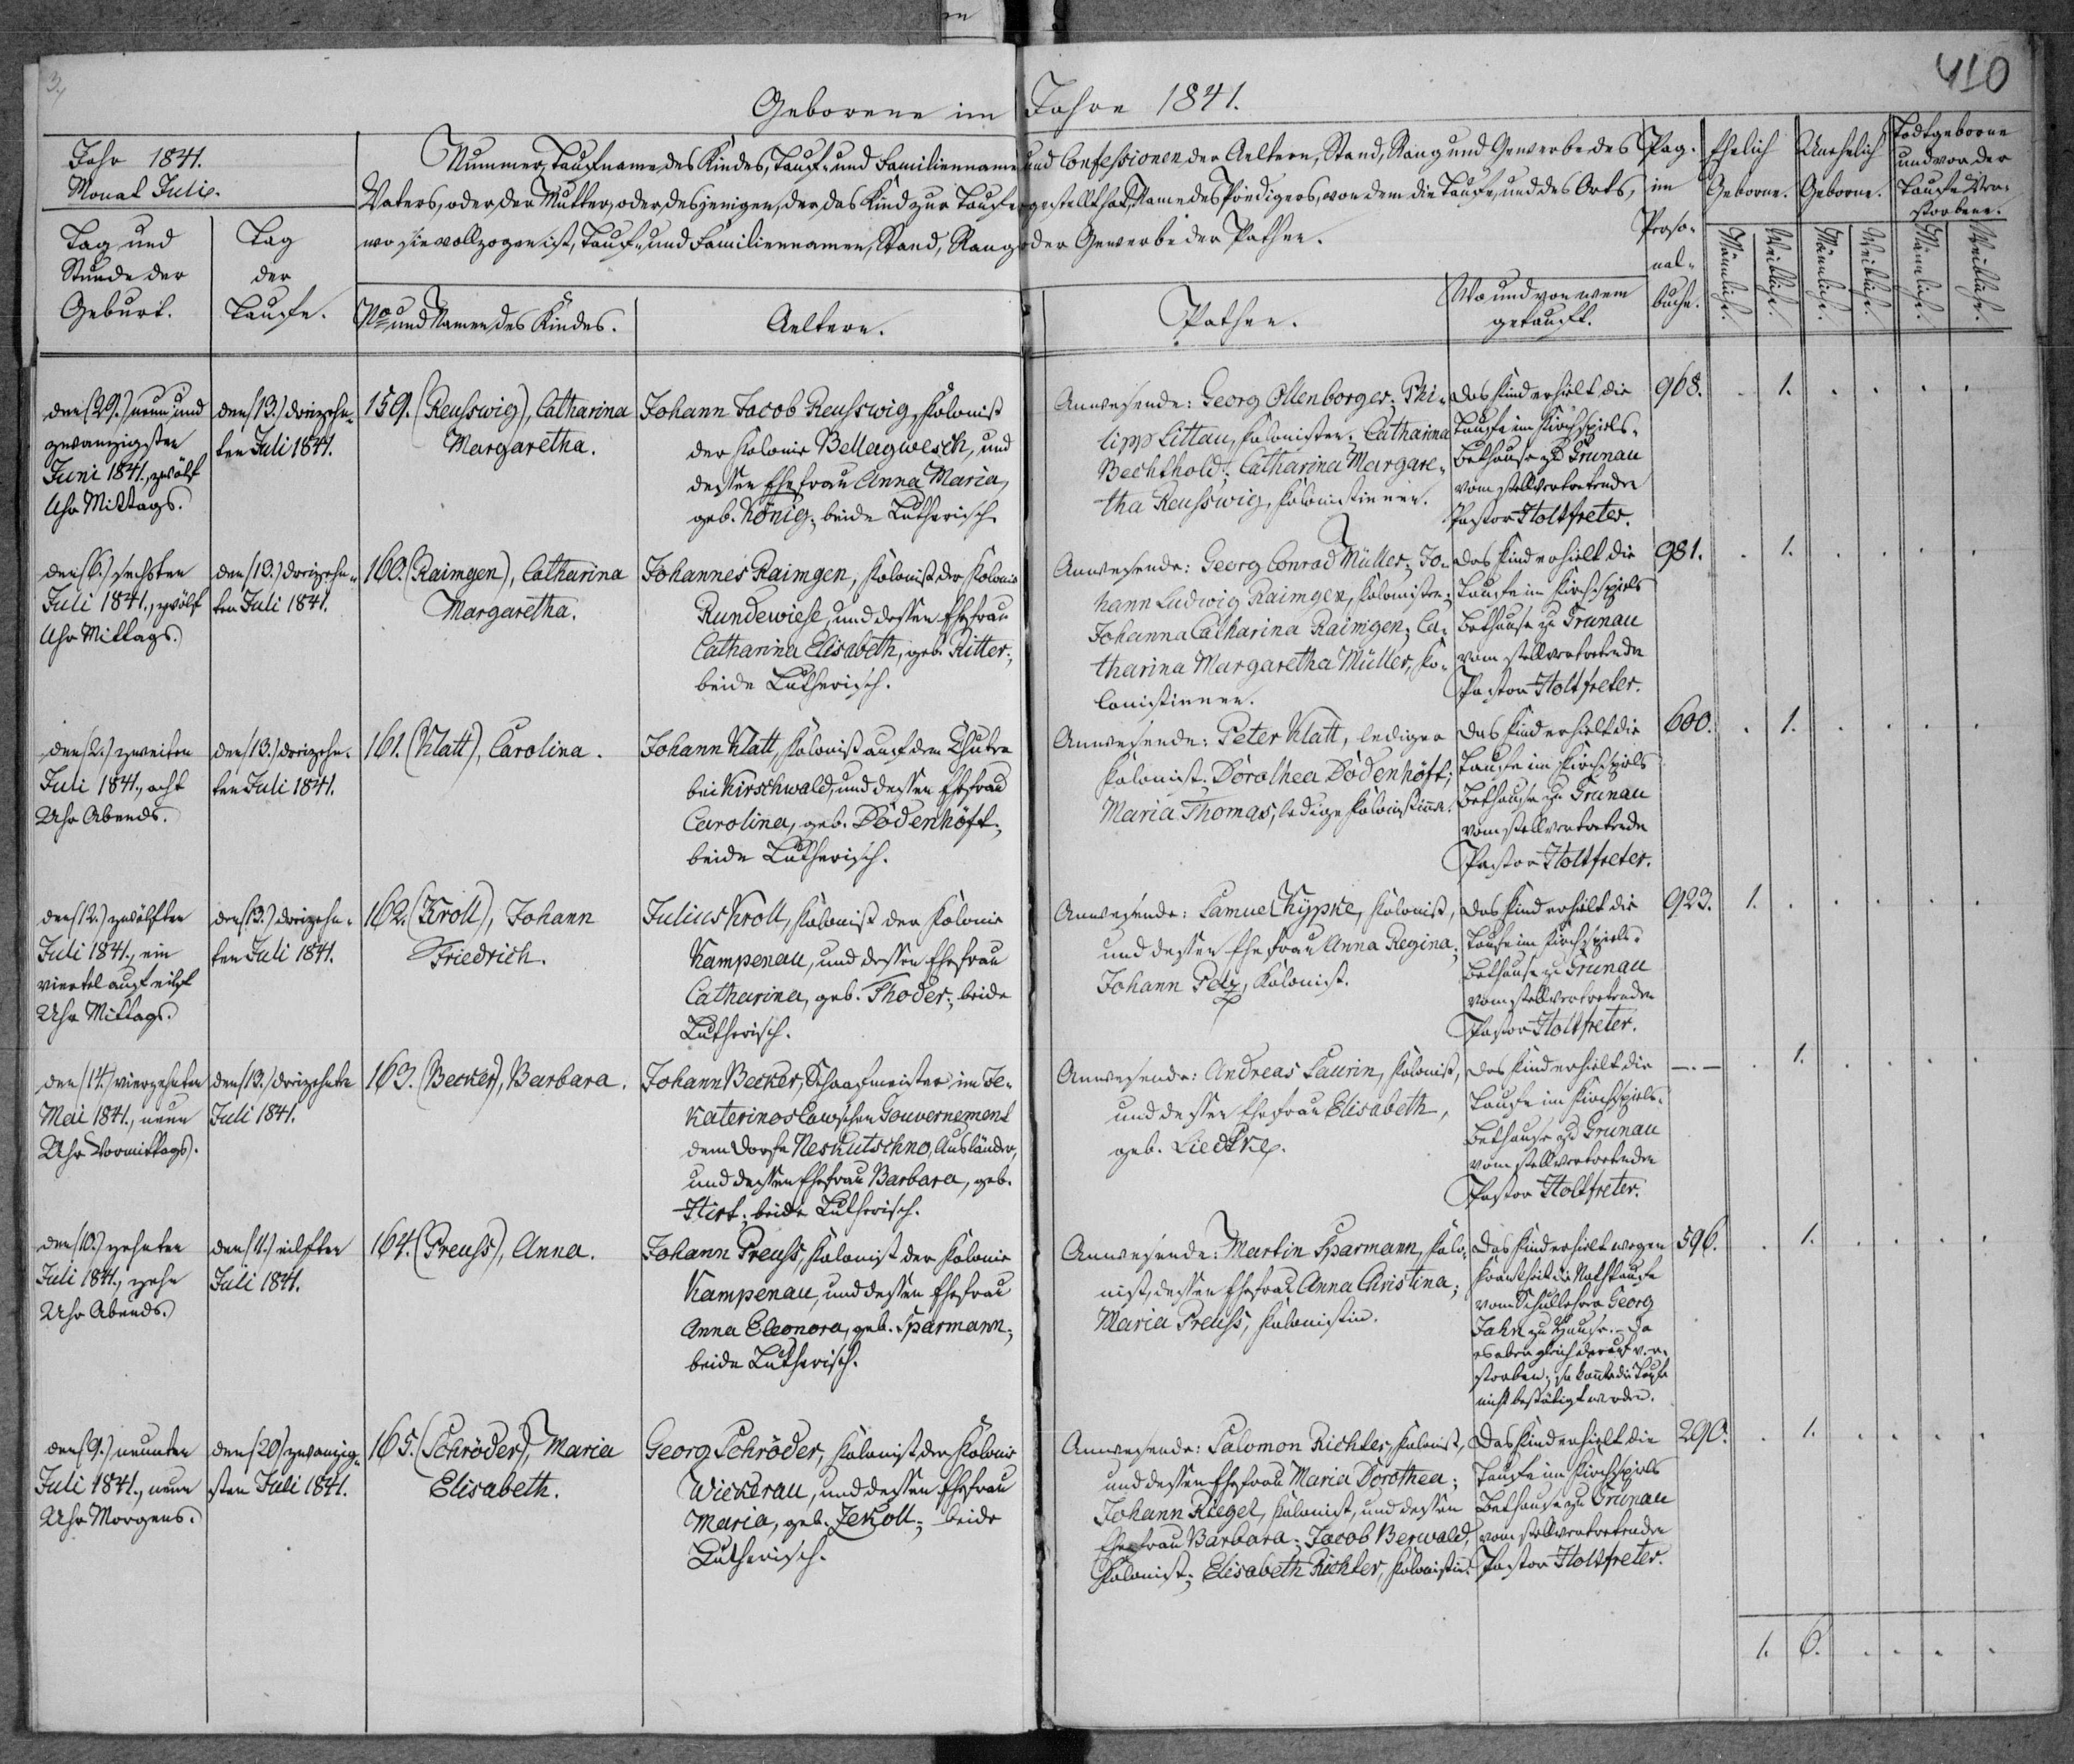 410
Geborene im Jahre 1841.
Jahr 1841.
Monat Juli.
Tag und
Stunde der
Geburt.
Tag
der
Taufe.
Nummer, Taufname des Kindes, Tauf- und Familienname und Confessionen der Aeltern, Stand, Rang und Gewerbe des
Vaters, oder der Mutter, oder desjenigen, der das Kind zur Taufe gestellt hat, Name des Predigers, von dem die Taufe, und des Orts,
wo sie vollzogen ist, Tauf- und Familiennamen, Stand, Rang oder Gewerbe der Pathen.
No und Namen des Kindes.
Aeltern.
Pathen.
Wo und von wem
getauft.
Pag.
im
Perso-
nal-
buche.
Ehelich
Geborne.
Unehelich
Geborne.
Todtgeborne
und vor der
Taufe Ver-
storbene.
Männliche.
Weibliche.
Männliche.
Weibliche.
Männliche.
Weibliche.
den (29.) neun und
zwanzigsten
Juni 1841., zwölf
Uhr Mittags.
den (13.) dreizehn-
ten Juli 1841.
159. (Reusswig), Catharina
Margaretha.
Johann Jacob Reusswig, Kolonist
der Kolonie Bellagwesch, und
dessen Ehefrau Anna Maria,
geb. König; beide Lutherisch.
Anwesende: Georg Ollenborger; Phi-
lipp Littau, Kolonisten; Catharina
Bechthold; Catharina Margare-
tha Reusswig, Kolonistinnen.
Das Kind erhielt die
Taufe im Kirchspiels-
Bethause zu Grunau
vom stellvertretenden
Pastor Holtfreter.
968. . 1. . . . .
den (6.) sechsten
Juli 1841., zwölf
Uhr Mittags.
den (13.) dreizehn-
ten Juli 1841.
160. (Raimgen), Catharina
Margaretha.
Johannes Raimgen, Kolonist der Kolonie
Rundewiese, und dessen Ehefrau
Catharina Elisabeth, geb. Ritter;
beide Lutherisch.
Anwesende: Georg Conrad Müller; Jo-
hann Ludwig Raimgen, Kolonisten;
Johanna Catharina Raimgen; Ca-
tharina Margaretha Müller, Ko-
lonistinnen.
Das Kind erhielt die
Taufe im Kirchspiels
Bethause zu Grunau
vom stellvertretenden
Pastor Holtfreter.
981. . 1. . . . .
den (2.) zweiten
Juli 1841., acht
Uhr Abends.
den (13.) dreizehn-
ten Juli 1841.
161. (Klatt), Carolina.
Johann Klatt, Kolonist auf dem Chutor
bei Kirschwald, und dessen Ehefrau
Carolina, geb. Dödenhöft;
beide Lutherisch.
Anwesende: Peter Klatt, lediger
Kolonist; Dorothea Dödenhöft;
Maria Thomas, ledige Kolonistinnen.
Das Kind erhielt die
Taufe im Kirchspiels
Bethause zu Grunau
vom stellvertretenden
Pastor Holtfreter.
600. . 1. . . . .
den (12.) zwölften
Juli 1841., ein
viertel auf eilf
Uhr Mittags.
den (13.) dreizehn-
ten Juli 1841.
162. (Kroll), Johann
Friedrich.
Julius Kroll, Kolonist der Kolonie
Kampenau, und dessen Ehefrau
Catharina, geb. Thoder; beide
Lutherisch.
Anwesende: Samuel Kypke, Kolonist,
und dessen Ehefrau Anna Regina;
Johann Petz, Kolonist.
Das Kind erhielt die
Taufe im Kirchspiels-
Bethause zu Grunau
vom stellvertretenden
Pastor Holtfreter.
923. 1. . . . . .
den (14.) vierzehnten
Mai 1841., neun
Uhr Vormittags.
den (13.) dreizehnten
Juli 1841.
163. (Becker), Barbara.
Johann Becker, Schaafmeister im Je-
katerinoslawschen Gouvernement
dem Dorfe Neskutschno, Ausländer,
und dessen Ehefrau Barbara, geb.
Hirt; beide Lutherisch.
Anwesende: Andreas Laurin, Kolonist,
und dessen Ehefrau Elisabeth,
geb. Liedtke.
Das Kind erhielt die
Taufe im Kirchspiels-
Bethause zu Grunau
vom stellvertretenden
Pastor Holtfreter.
—.— . 1. . . . .
den (10.) zehnten
Juli 1841., zehn
Uhr Abends.
den (11.) eilften
Juli 1841.
164. (Preuss), Anna.
Johann Preuss, Kolonist der Kolonie
Kampenau, und dessen Ehefrau
Anna Eleonora, geb. Sparmann;
beide Lutherisch.
Anwesende: Martin Sparmann, Kolo-
nist, dessen Ehefrau Anna Christina;
Maria Preuss, Kolonistin.
Das Kind erhielt wegen
Krankheit die Nothtaufe
vom Schullehrer Georg
Jahn zu Hause. Da
es aber gleich darauf ver-
storben; so konnte die Taufe
nicht bestätigt werden.
596. . 1. . . . .
den (9.) neunten
Juli 1841., neun
Uhr Morgens.
den (20.) zwanzig-
sten Juli 1841.
165. (Schröder), Maria
Elisabeth.
Georg Schröder, Kolonist der Kolonie
Wickerau, und dessen Ehefrau
Maria, geb. Jekoll; beide
Lutherisch.
Anwesende: Salomon Richter, Kolonist,
und dessen Ehefrau Maria Dorothea;
Johann Riegel, Kolonist, und dessen
Ehefrau Barbara; Jacob Berwald,
Kolonist; Elisabeth Richter, Kolonistin.
Das Kind erhielt die
Taufe im Kirchspiels
Bethause zu Grunau
vom stellvertretenden
Pastor Holtfreter.
290. . 1. . . . .
1. 6. . . . .